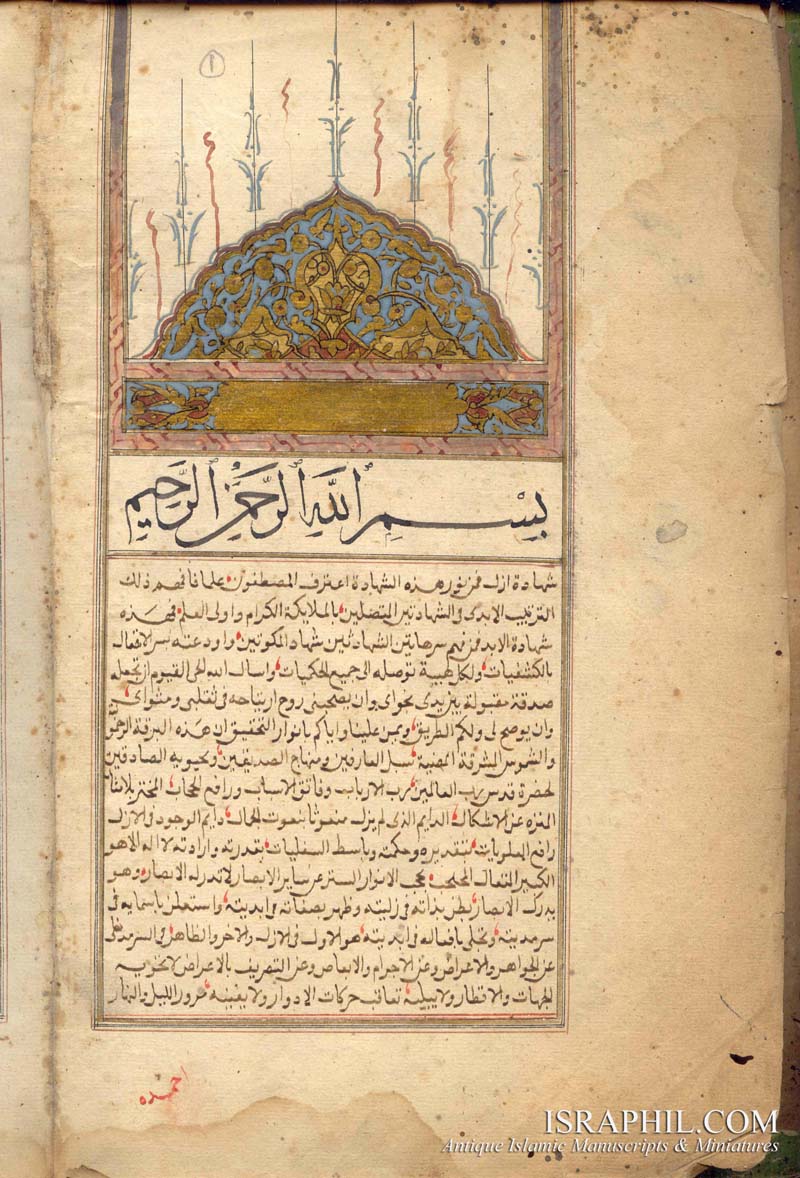 ١
بِسْمِ اللَّهِ الرَّحْمَنِ الرَّحِيمِ
شهادة ازل فمن نور هذه الشهادة اعترف المصطفون علما فافهم ذلك
الترتيب الابدى فى الشهادتين المتصلين بالملايكة الكرام واولى العلم فهذه
شهادة الابد فمن فهم سر هاتين الشهادتين شهاد المكونين واودعته بسر الافعال
بالكشفيات ولكل هيبة توصله الى جميع الحكميات واسال الله الحى القيوم ان يجعله
صدقة مقبولة بين يدى نجواى وان يصحبنى روح ارتياحه فى تقلبى ومثواى
وان يوضح لى ولكم الطريق ويمن علينا واياكم بانوار التحقيق ان هذه البرقة
والشموس المشرقة المضية سبل العارفين ومنهاج الصديقين الصادقين
لحضرة قدس رب العالمين رب الارباب وفاتق الاسباب ورافع الحجاب
المنزه عن الاشكال الدايم الذى لم يزل منعوتا بنعوت الجمال دايم الوجود فى الازل
رافع العلويات بتقديره وحكمته وباسط السفليات بقدرته وارادته لا اله الا هو
الكبير المتعال المحتجب بحجب الانوار الستر عن ساير الابصار لا تدركه الابصار وهو
يدرك الابصار بطن بذاته فى ازليته وظهر بصفاته فى ابديته واستعلن باسمايه فى
سرمديته وتجلى بافعاله فى ابديته هو الاول فى الازل والاخر والظاهر فى السرمد
عن الجواهر والاعراض وعن الاجرام والابعاض وعن التعريف بالاعراض لا تحويه
الجهات والاقطار ولا يبليه تعاقب حركات الادوار ولا يفنيه مرور الليل والنهار
احمده
ISRAPHIL.COM
Antique Islamic Manuscripts & Miniatures